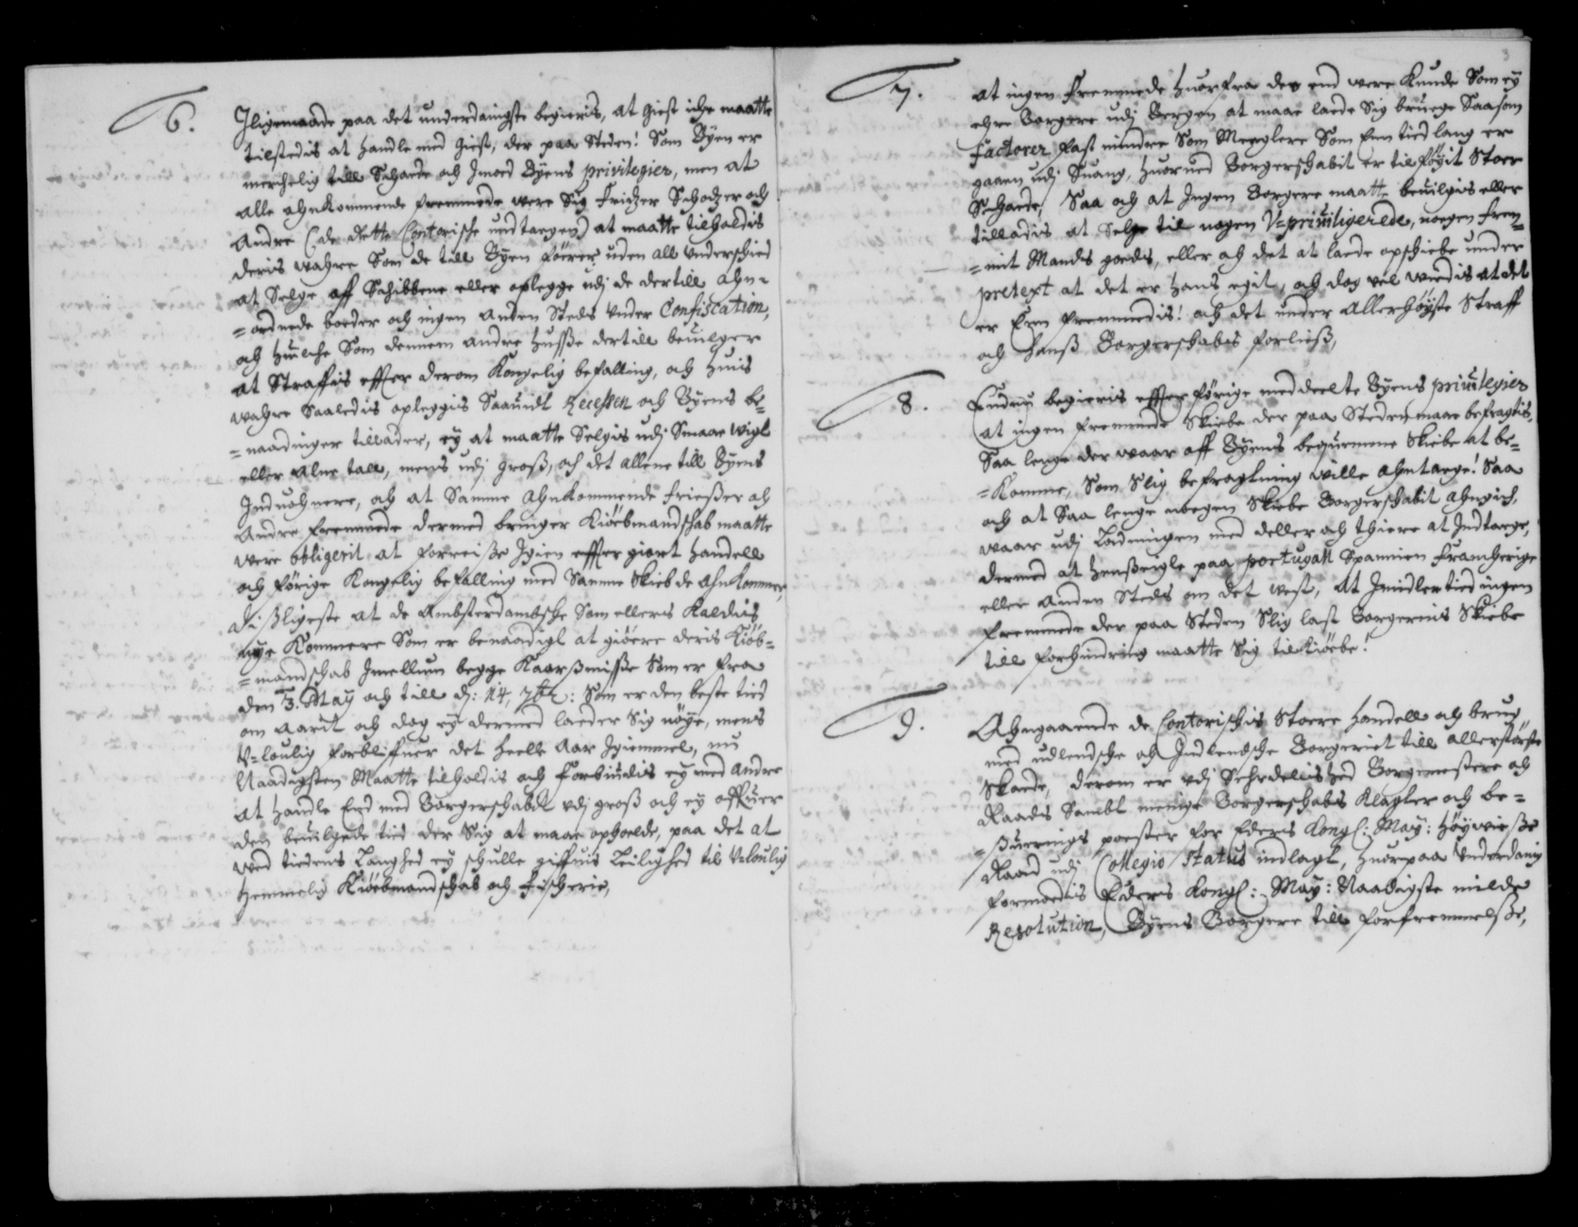 6. Iligemaade paa det underdanigste begieris, at giest iche maatte
tilstedis at handle med giest, der paa Steden! Som Byen er
merchelig till Schaede och Imoed Byens privilegier, men at
alle ahnkommende fremmede were Sig Fridzer Schodzer och
Andre (de dette Contorische undtagen) at maatte tilholdis
deris wahre Som de till Byen föerer uden all Underschied
at Selge aff Schibbene eller oplegge udj de dertill ahn-
=ordnede boeder och ingen Anden Steds under Confiscation,
och huilche Som dennem andre husse dertill beuilger
at Straffis effter derom Kongelig befalling, och huis
wahre Saaledis opleggis Saauidt Recessen och Byens be=
=naadinger tillader, ey at maatte Selgis udj Smaae wigt
eller alne tall, mens udj gross, och det allene till Byens
Induohnere, och at Samme ahnkommende friesser och
Andre fremmede dermed bringer Kiöebmandschab maatte
were obligerit at forreisse Igien effter giort handell
och förige Kongelig befalling med Samme Skieb de ahnkommer,
dissligeste at de Ambsterdambsche Som ellers Kaeldis
nye Kommere Som er benaadigt at giöere deris Kiöb=
=mandschab Imellum begge Kaarssmisse Som er fra
den 3. Maij och till d: 14, 7br: Som er den beste tied
om aarit och dog ey dermed laeder Sig nöye, mens
U-loulig forbliffuer det heelle Aar Igiemmel, nu
Naadigsten Maatte tilholdis och forbiudis ey med andre
at handle End med Borgerschabit udj gross och ey offuer
den beuilgede tied der Sig at maae opholde, paa det at
ved tiedens Langhed ey schulle giffuis Leilighed til U-loulig
hemmelig Kiöebmandschab och fischerie,
3
7. at ingen fremmede huorfra de end were kunde Som ey
ehre Borgere udj Bergen at maae laede Sig bruege Saasom
Factorer fast mindre Som Meeglere Som Een tied lang er
gaaen udj Suang, huormed Borgerschabit er tilföyit Stoer
Schaede, Saa och at Ingen Borgere maatte beuilgis eller
tilladis at Selge til nogen U-priuiligerede, nogen frem=
=mit Mands goeds, eller och det at laede opschiebe under
pretext at det er hans egit, och dog vel wiedis at det
er Een fremmedis! och det under Allerhöyste Straff
och hanss Borgerschabs forliiss,
8. Endnu begieris effter förige meddeelte Byens priuilegier
at ingen fremmede Skiebe der paa Steden maae befragtis,
Saa lenge der waar aff Byens bequemme Skiebe at be=
=Komme, Som Slig befragtning wille ahntaege! Saa
och at Saa lenge nogen Skiebe Borgerschabit ahngich,
waar udj Ladningen med deller och thiere at Indtaege,
dermed at henseigle paa portugall Spannien Franckerige
eller Anden Steds om det west, at Imidlertied ingen
fremmede der paa Steden Slig last Borgernis Skiebe
till forhindring maatte Sig tilkiöebe!
9. Ahngaaende de Contorischis Stoere handell och brug,
med udlendsche och Indlendsche Borgeriet till allerstörste
Skaede, derom er udj Sehrdellished Borgemestere och
Raads Sambt menige Borgerschabs Klagter och be=
=suerings poester for Eders Kongl: May: höywiisse
Raad udj Collegio Status indlagt, huorpaa Underdanig
formodis Eders Kongl: May: Naadigste milde
Resolution, Byens Borgere till forfremmelsse,